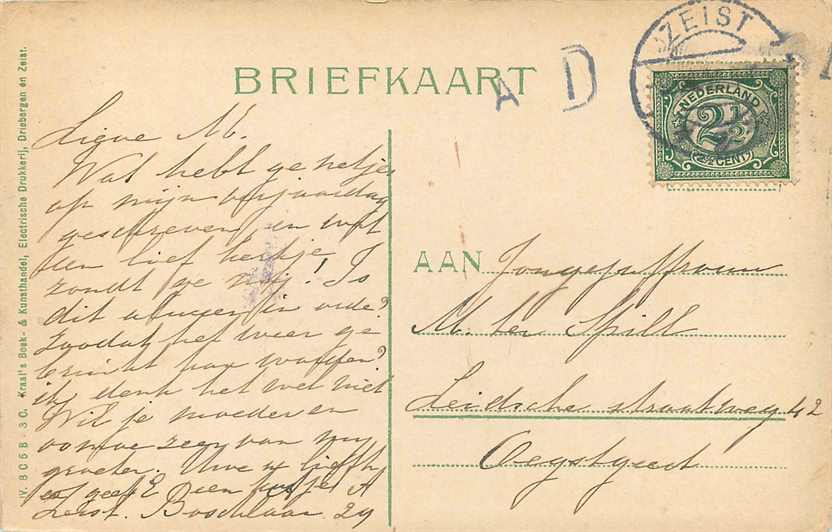 BRIEFKAART
A D
ZEIST
NEDERLAND
2½
2½ CENT
Lieve M.
Wat hebt ge netjes
op mijn verjaardag
geschreven, en wat
een lief hertje
zondt ge mij! Is
dit weer in orde?
Zoodat het weer ge
bruikt kan worden?
ik denk het wel niet
Wil je moeder en
oome zeer van mij
groeten. Uwe u liefh.
geeft een
Zeist. Boschlaan 29
AAN Jongejuffrouw
M. ter Spill
Leidsche straatweg 42
Oegstgeest
IV. 8 C 5 B - 3 C. Kraal's Boek- & Kunsthandel, Electrische Drukkerij, Driebergen en Zeist.